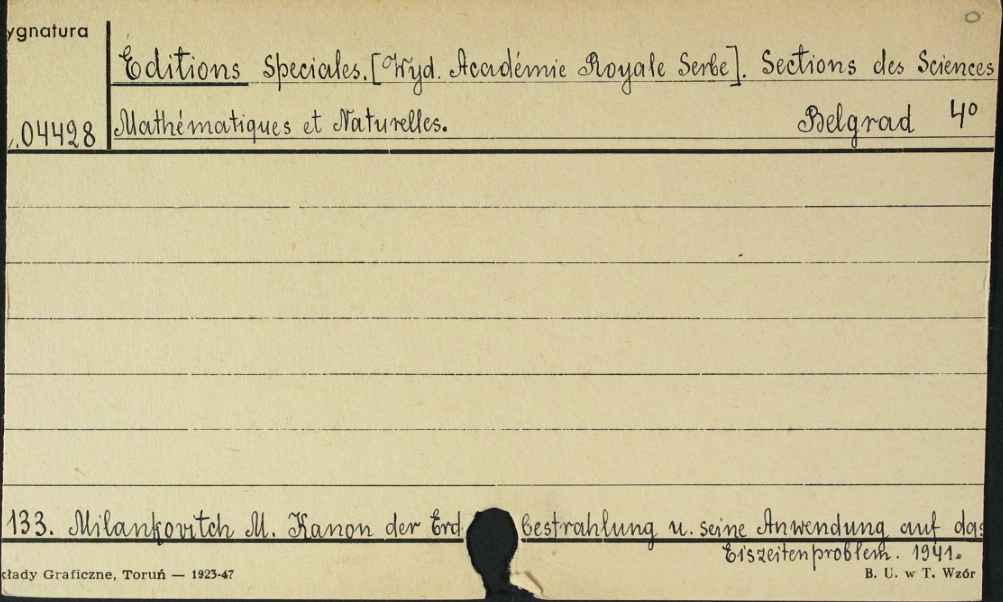 ygnatura
Editions Speciales. [Wyd. Académie Royale Serbe]. Sections des Sciences
04428 Mathématiques et Naturelles. Belgrad 4º
133. Milankovitch M. Kanon der Erdbestrahlung u. seine Anwendung auf das
Eiszeitenproblem. 1941.
kłady Graficzne, Toruń — 1923-47 B. U. w T. Wzór